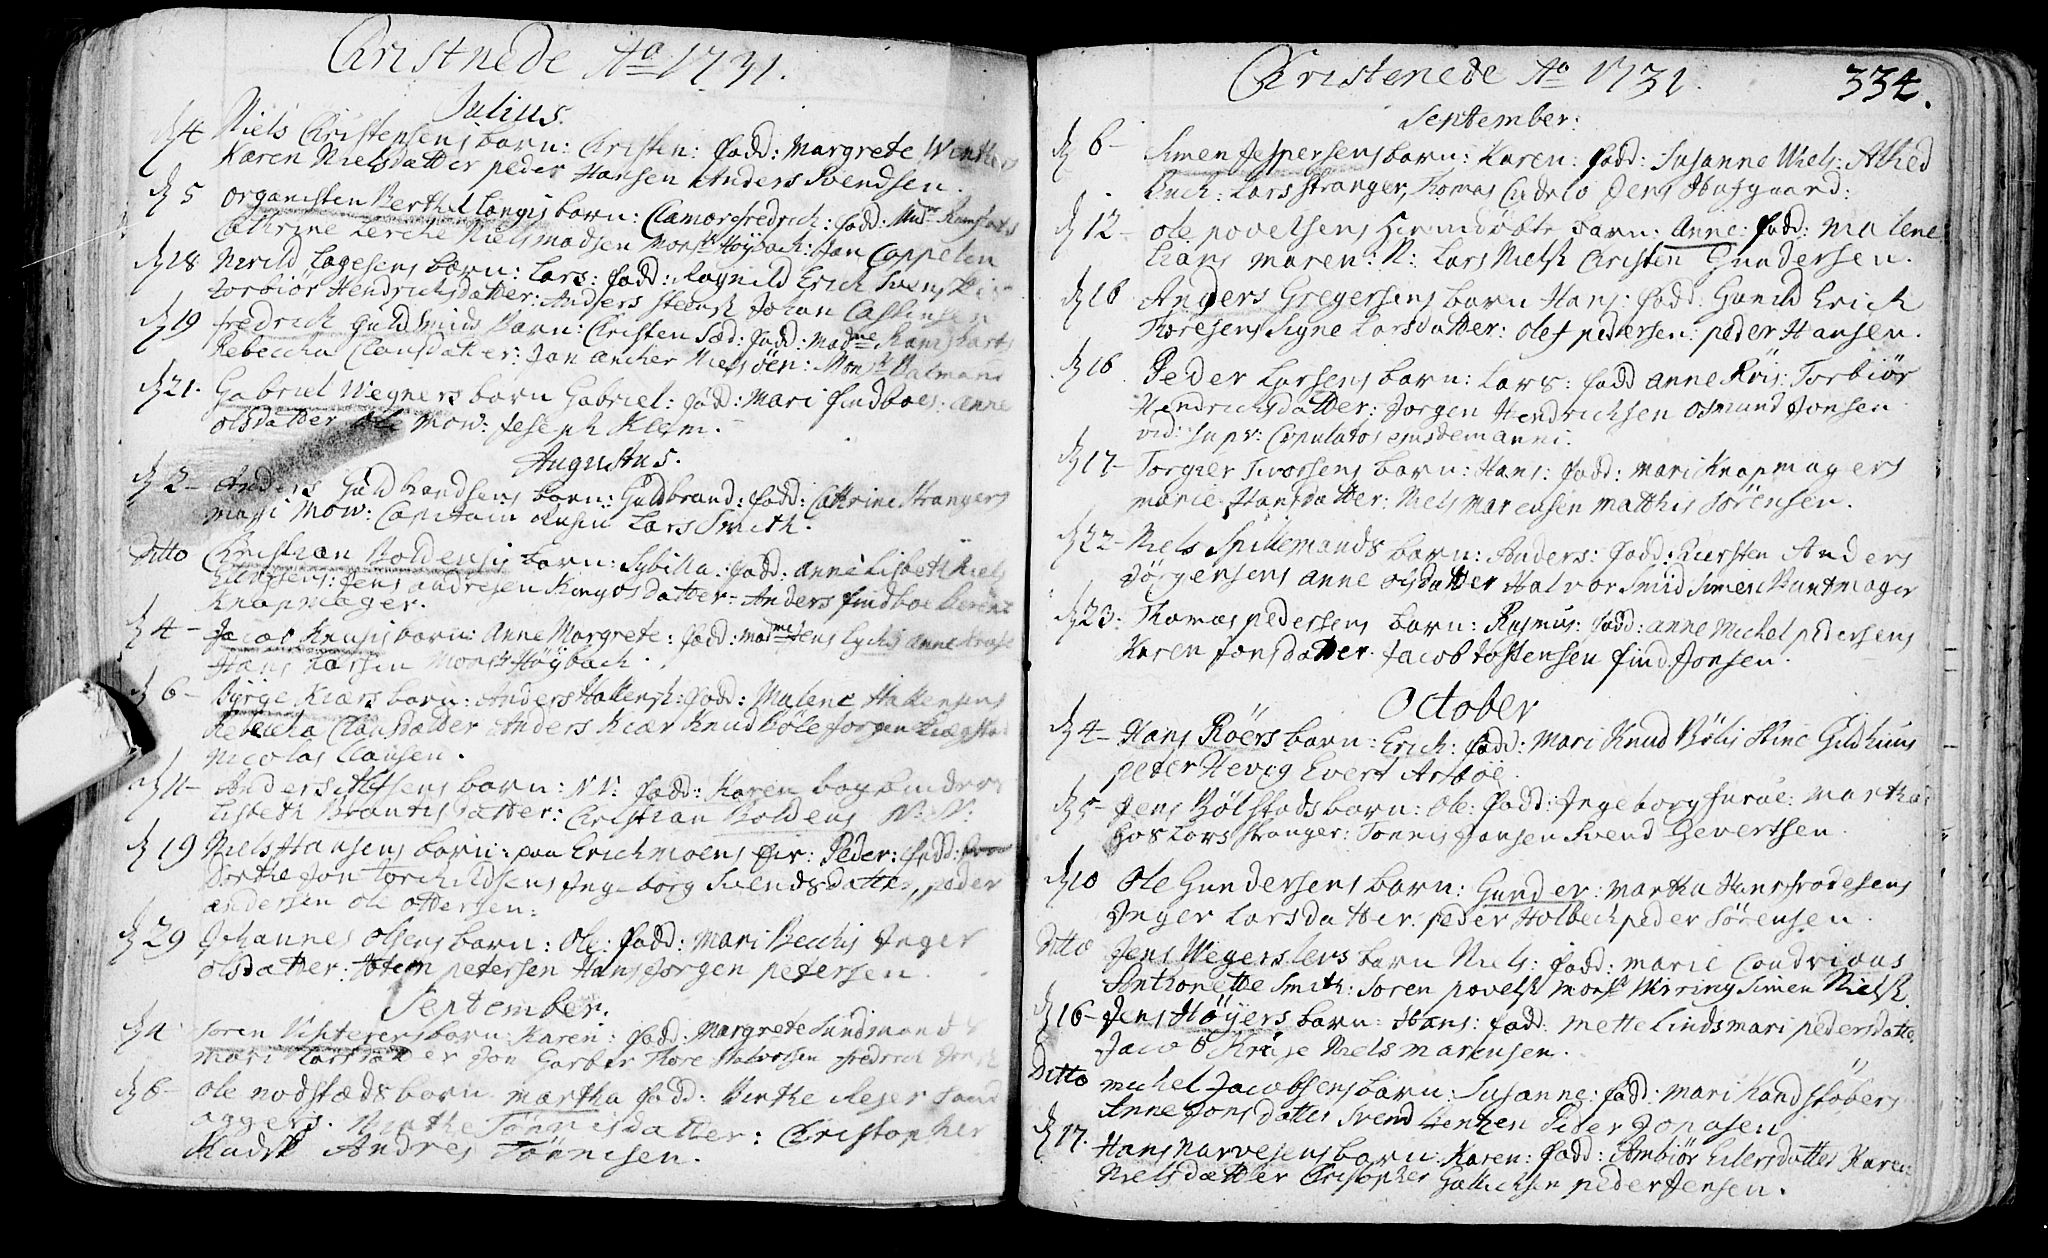 Christnede Ao 1731.
Julius.
d 4 Niels Christensens barn: Christen: fadd: Margrete Winthers
Karen Nielsdatter peder Hansen Anders Svendsen.
d 5 organisten Berthel Langis barn: Clamor fredrich: fadd: Mdme
Cathrine Lerche Niels madsen Monsr Höybach: Jan Cappelen
d 18 Nerild Lagesens barn: Lars: fadd: Ragnild Erich
Torbiör Hendrichsdatter: Anders Johan
d 19 fredrich Guldsmids barn: Christen Sæd: fadd: Madme Ramsharts
Rebeccha Clausdatter: Jan ancher Nielsöen: Monsr
d 21. Gabriel Wegners barn Gabriel: fadd: Mari findboes: anne
olsdatter Ole Mow: Joseph Klem.
Augustus.
d 2 Anders Guldbrandsens barn: Guldbrand: fadd: Cathrine Strangers
Mow: Capitain Lars Smith.
Ditto Christian Boldensis barn: Sybilla: fadd: anne Lisbeth Niels
Jens andresen Kongosdatter Anders findboe
Knapmager.
d 4 Jacob barn: Anne Margrete: fadd: Madme Jens Lychs anne
Hans Larsen Monsr Höybach.
d 6 Börge Kiærs barn: Anders Hallensk: fadd: Malene Hallensens
Rebeccha Clausdatter Anders Kiær Knud Böle Jorgen
Nicolas Clausen.
d 11 Anders barn: N N: fadd: Karen bogbinders
Lisbeth datter: Christian Boldens N: N:
d 19 Niels Hansens barn: paa Erichmoens Eir: Peder: fadd:
Dorthe Jon Torchildsens Ingeborg Svendsdatter,, peder
andersen Ole ottersen:
d 29 Johannes olsens barn: Ole: fadd: Mari Becchis Inger
olsdatter: petersen Hans Jorgen petersen
September.
d 4 Soren barn: Karen: fadd: Margrete Sundmands
Mari Larsdatter Jon Garber Thore Halvorsen fredrich
d 6 Ole nodstæds barn martha fadd: Birthe
aggers. Birthe Tönnisdatter: Christopher
Madsk Andres Tönnisen.
Christenede Ao 1731. 334.
September:
d 6 Simen Jespersens barn: Karen: fadd: Susanne Niels: Alhed
Buch: Lars Stranger, Thomas Jens Hufgaard:
d 12 Ole povelsens hiemdöbte barn: Anne: fadd: Malene
maren: N: Lars Nielsk Christen Gundersen.
d 16 Anders Gregersens barn Hans: fadd: Gunild Erich
Thoresens Signe Larsdatter: Olef pedersen: peder Hansen.
d 16 Peder Larsens barn: Lars: fadd anne Röis: Torbiör
Hendrichsdatter: Jorgen Hendrichsen Osmund Jonsen
vid: supr: Copulatos ejusdem anni:
d 17 Torgier Iversens barn: Hans: fadd: Mari Knapmagers
marie Hansdatter: Niels Marcusen Matthis Sörensen.
d 22 Niels Spillemands barn: Anders: fadd: Kiersten Anders
Jörgensens anne olsdatter Halvor Smid Simen Buntmager
d 23: Thomas pedersens barn: Rasmus: fadd: anne Michel pedersens
Karen Jonsdatter. Jacob Tostensen find Jonsen.
October
d 4 Hans Röers barn: Erich: fadd: Mari Knud Bölis Stine Gildhuus
peter Hevig Evert Arböe.
d 5 Jens Bölstads barn: Ole: fadd: Ingeborg furöe: Martha
hos Lars Stranger: Tönnis Jansen Svend Gevertsen.
d 10 Ole Gundersens barn: Gunder: Martha Hans frodesens
Inger Larsdatter: peder Holbech peder Sörensen.
Ditto Jens Wegerslevs barn Niels: fadd: Marie
Anthonette Smith: Soren povelsk Monsr Wiring Simen Nielsk.
d 16 Jens Höyers barn: Hans: fadd: Mette Linds mari pedersdatter.
Jacob Kruse Niels Marcusen.
Ditto Michel Jacobsens barn: Susanne: fadd: Mari Handskobers
Anne Jonsdatter Svend Peder Jopasen
d 17. Hans Narvesens barn: Karen: fadd: Ambiör Eilersdatter Karen
Nielsdatter Christopher peder Jensen.